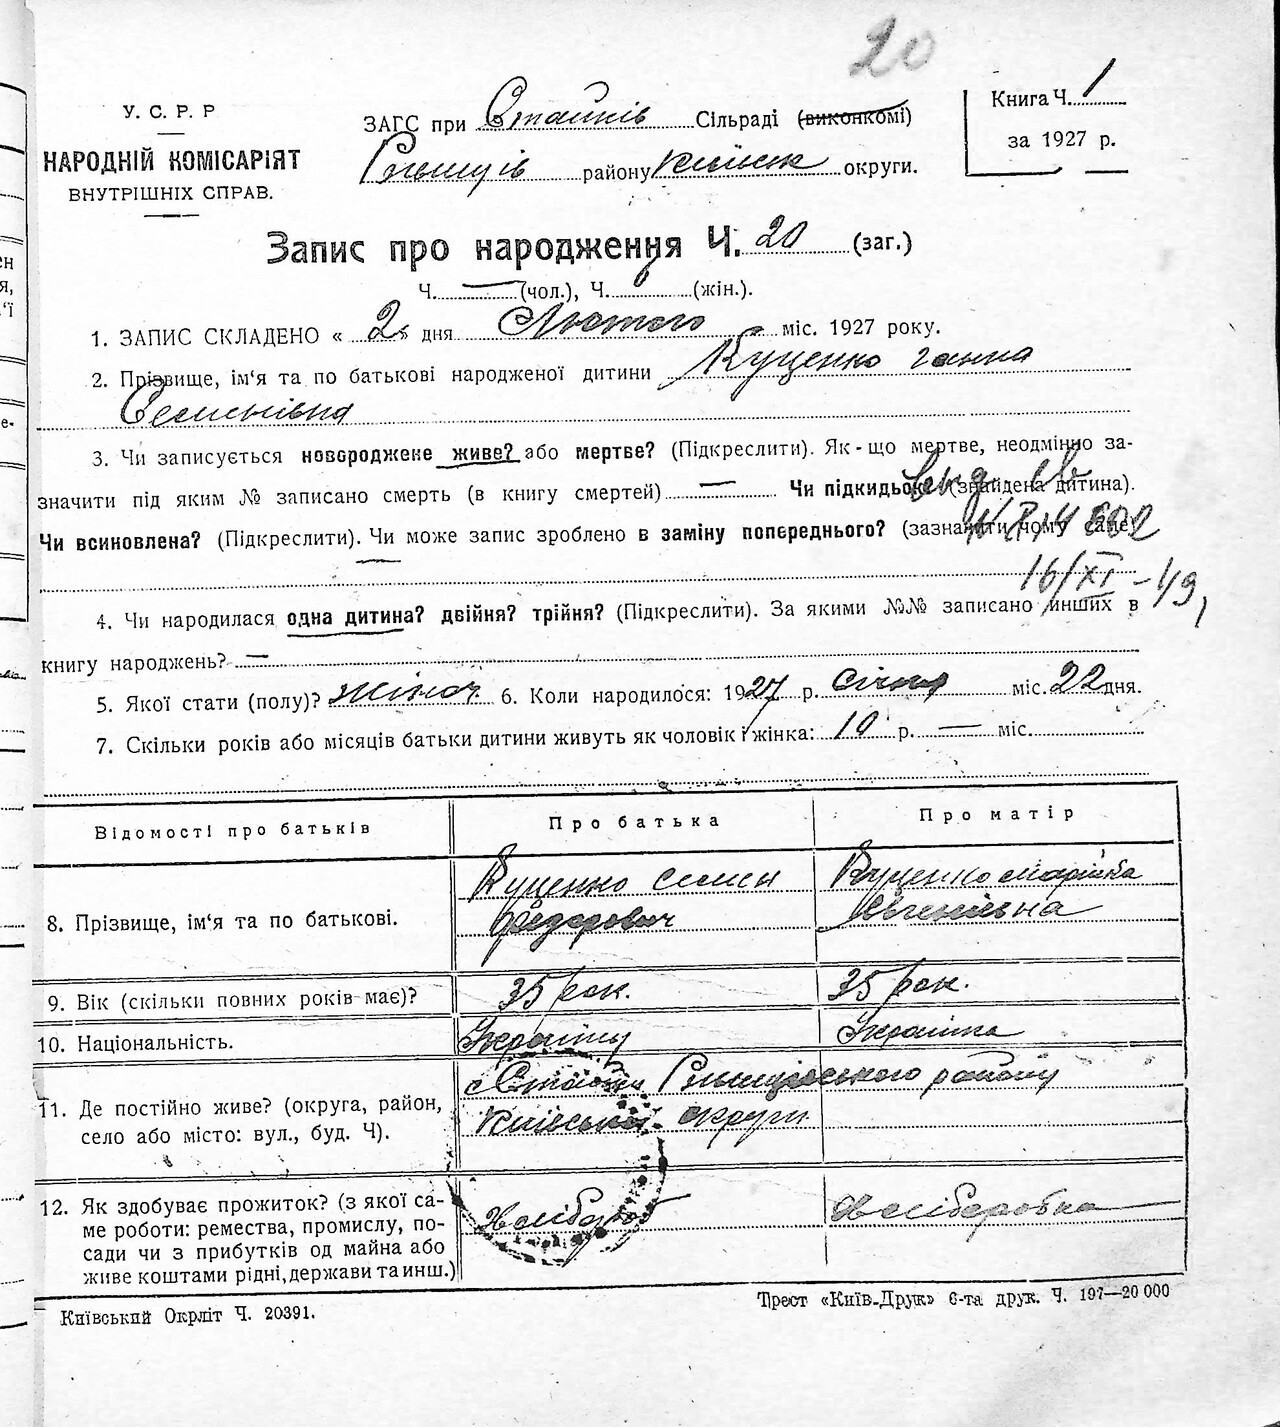 20
У. С. Р. Р
НАРОДНІЙ КОМІСАРІЯТ
ВНУТРІШНІХ СПРАВ.
ЗАГС при Стайків Сільраді (виконкомі)
Ржищів району Київськ округи.
Книга Ч. 1
за 1927 р.
Запис про народження Ч. 20 (заг.)
Ч. — (чол.), Ч. (жін.).
1. ЗАПИС СКЛАДЕНО « 2 » дня Лютого міс. 1927 року.
2. Прізвище, ім‘я та по батькові народженої дитини Куценко Ганна
Семенівна
3. Чи записується новороджене живе? або мертве? (Підкреслити). Як-що мертве, неодмінно за-
значити під яким № записано смерть (в книгу смертей) — Чи підкидьок (знайдена дитина).
Чи всиновлена? (Підкреслити). Чи може запис зроблено в заміну попереднього? (зазначити чому саме)
16/XI - 49,
4. Чи народилася одна дитина? двійня? трійня? (Підкреслити). За якими №№ записано инших в
книгу народжень? —
5. Якої стати (полу)? жіноч 6. Коли народилося: 1927 р. січня міс. 22 дня.
7. Скільки років або місяців батьки дитини живуть як чоловік і жінка: 10 р. — міс.
Відомості про батьків
Про батька
Про матір
8. Прізвище, ім‘я та по батькові.
Куценко Семен
Федорович
Куценко Марійка
Євгенівна
9. Вік (скільки повних років має)?
35 рок.
35 рок.
10. Національність.
Україн
Українка
11. Де постійно живе? (округа, район,
село або місто: вул., буд. Ч).
с Стайки Ржищівського району
Київської округи
12. Як здобуває прожиток? (з якої са-
ме роботи: ремества, промислу, по-
сади чи з прибутків од майна або
живе коштами рідні, держави та инш.)
Хлібороб
Хліборобка
Київський Окрліт Ч. 20391.
Трест «Київ-Друк» 6-та друк. Ч. 197—20 000